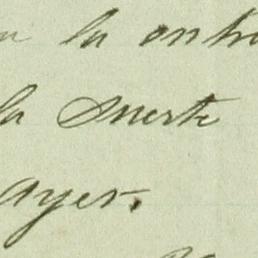 la entr
la suerte
ayer.